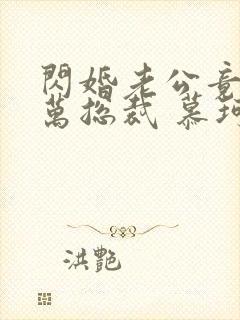 閃婚老公竟
萬總裁 慕珂
洪艷